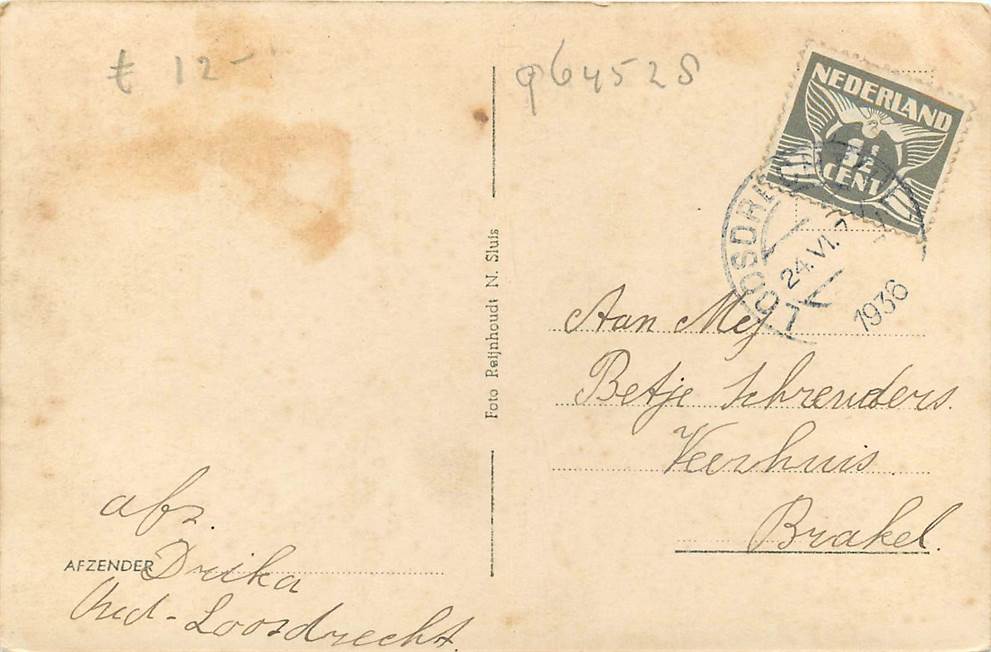 € 12-
964528
NEDERLAND
1½
CENT
LOOSDRECHT
24.VI.
1936
Foto Reijnhoudt N. Sluis
Aan Mej
Betje Schreuders.
Veerhuis.
Brakel.
afz.
AFZENDER Drika
Oud-Loosdrecht.